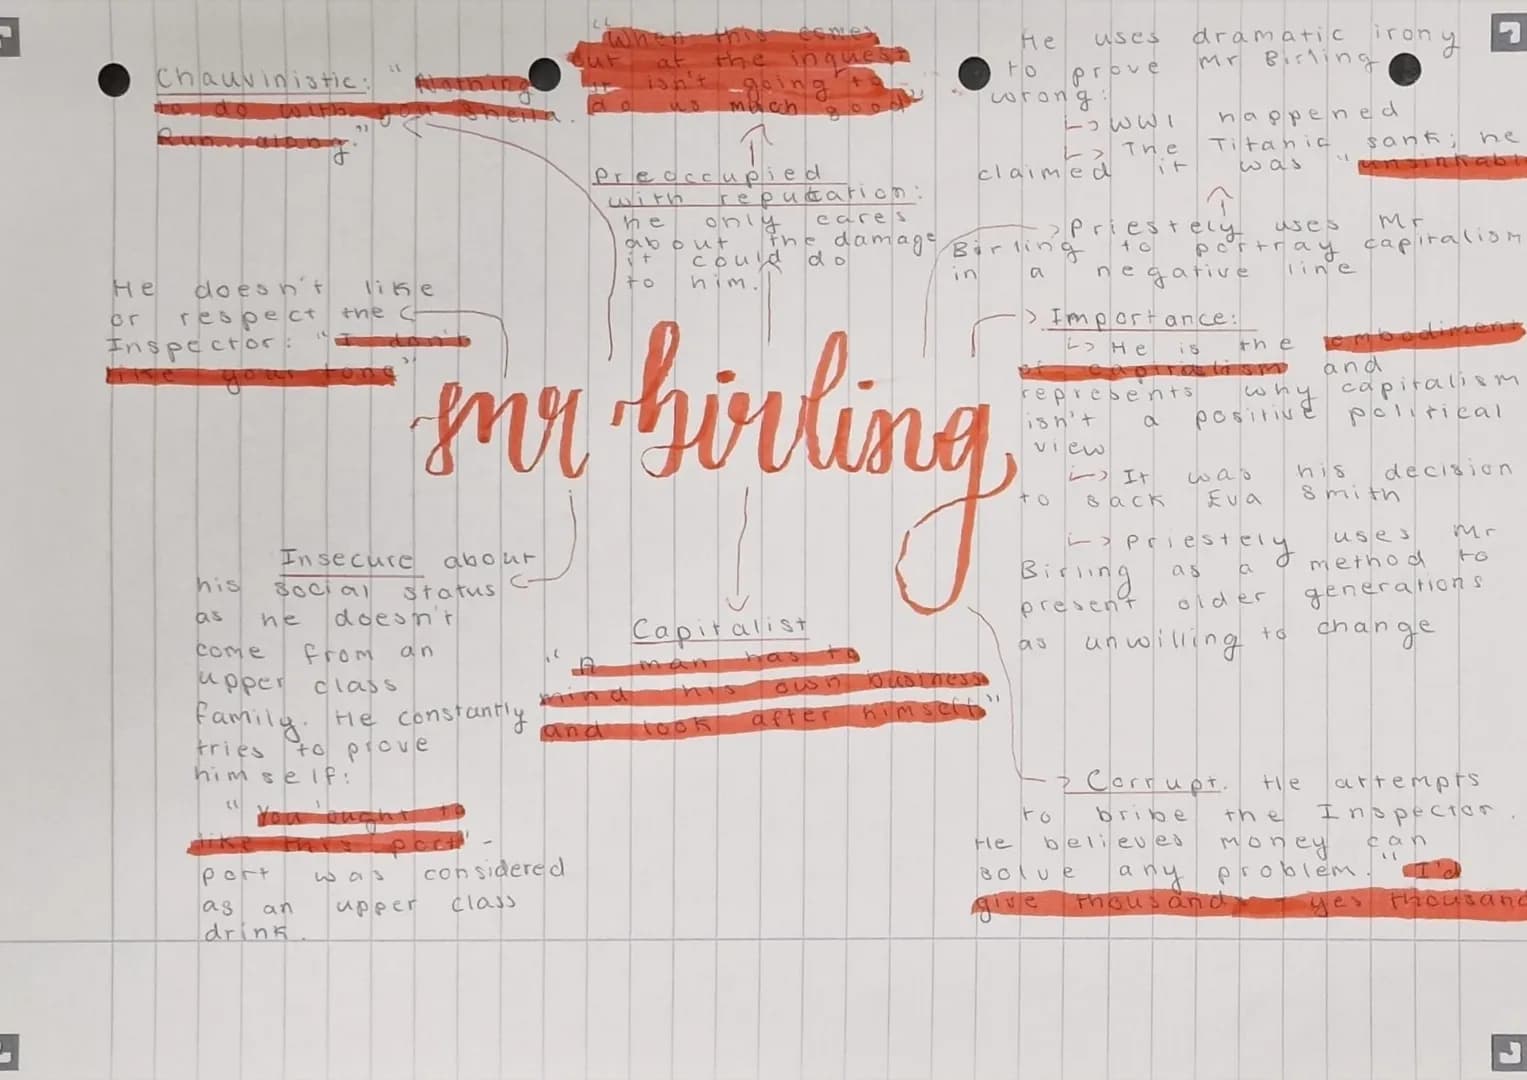 Chauvinistic: "Nothing
to do with you Sheila.
Run along."
"When this comes
out at the inquest
it isn't going to
do us much good"
He uses dramatic irony
to prove Mr Birling
wrong:
↳ WW1 happened
↳ The Titanic sank; he
claimed it was "unsinkabl
Preoccupied
with reputation:
he only cares
about the damage
it could do
to him.
Priestely uses Mr
Birling to portray capitalism
in a negative line
He doesn't like
or respect the
Inspector: "I don't
like your tone"
Importance:
↳ He is the embodiment
of capitalism and
represents why capitalism
isn't a positive political
view
↳ It was his decision
to sack Eva Smith
↳ Priestely uses Mr
Birling as a method to
present older generations
as unwilling to change
mr birling
Insecure about
his social status
as he doesn't
come from an
upper class
family. He constantly
tries to prove
himself:
"You ought to
like this port" -
port was considered
as an upper class
drink.
Capitalist
"A man has to
mind his own business
and look after himself"
Corrupt. He attempts
to bribe the Inspector.
He believes money can
solve any problem. "I'd
give thousands - yes thousand